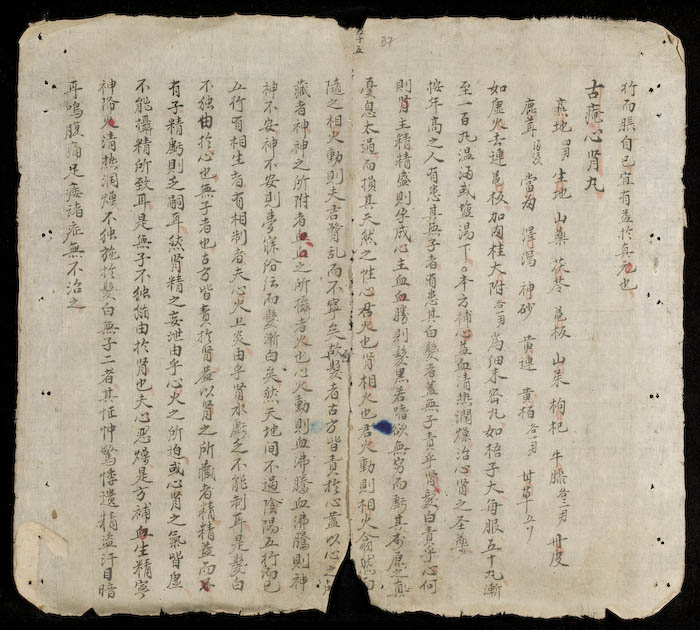 行而脹自已宜有益於真元也
古菴心腎丸
熟地 生地 山藥 茯苓 龜板 山茱 枸杞 牛膝各三刄 丹皮
鹿茸 當歸 澤瀉 神砂 黄連 黄栢 甘草五
如虚火去連龜板加肉桂大附各一刄為細末蜜丸如梧子大每服五十丸漸
至一百丸温酒或塩湯下○本方補心益血清热潤燥治心腎之圣藥
按年高之人有患其無子者有患其白髮者蓋無子責乎腎髮白責乎心何
則腎主精精盛則孕成心主血血勝則髮黑若嗜欲無窮而虧其
憂思太過而損其天然之性心君火也腎相火也君火動則相火翕然而
隨之相火動則夫吝腎乱而不寧矣故髮者古方皆責於心蓋以心之所
藏者神神之所附者血血之所攝者火也心火動則血沸騰血沸騰則神
神不安神不安則夢寐紛紜而髮漸白矣然天地間不過陰陽五行而已
五行有相生者有相制者夫心火旦炎由乎腎水虧之不能制耳是髮白
不独由於心也無子者也古方皆責於腎蓋以腎之所藏者精精益而不
有子精虧則乏嗣耳然腎精之妄泄由乎心火之所迫或心腎之氣皆虚
不能攝精所致耳是無子不独由於腎也夫心惡燥是方補血生精寧
神降火清热潤燥不独施於髮白無子二者其怔忡驚悸遺精盗汗目暗
耳鳴腹痛足痿诸症無不治之
37